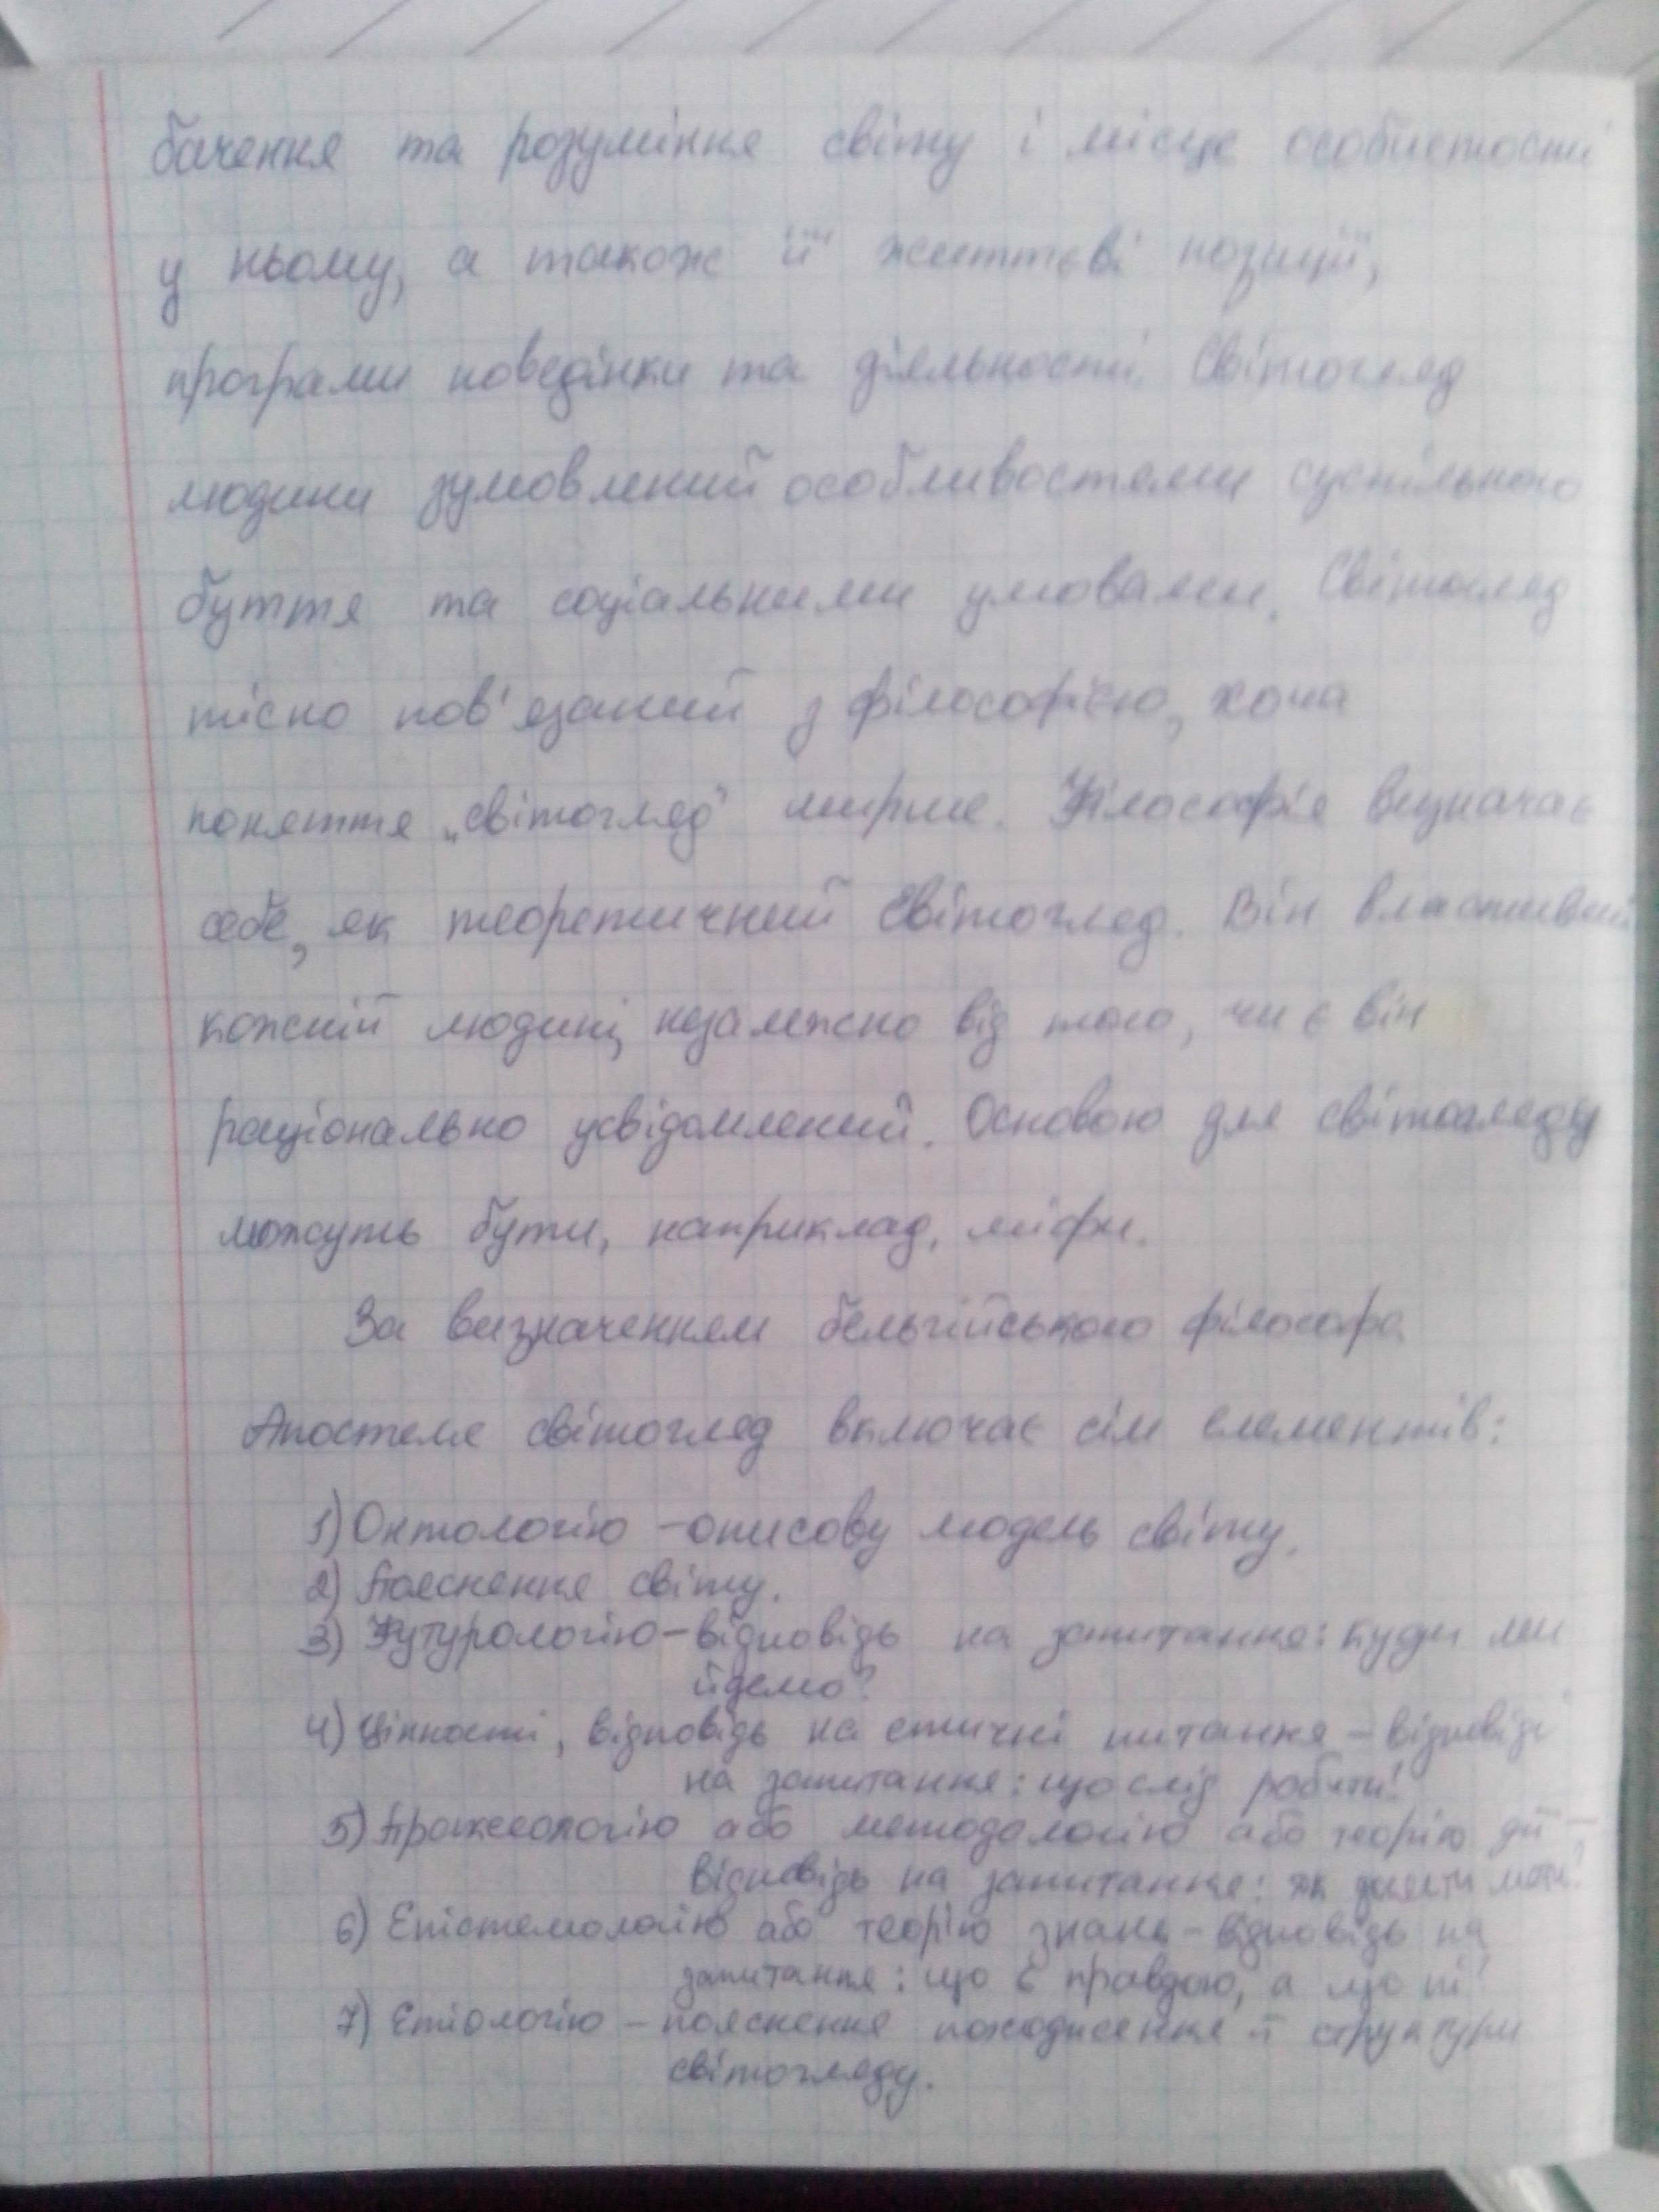 бачення та розуміння світу і місце особистості
у ньому, а також її життєві позиції,
програми поведінки та діяльності. Світогляд
людини зумовлений особливостями суспільного
буття та соціальними умовами. Світогляд
тісно пов'язаний з філософією, хоча
поняття „світогляд" ширше. Філософія визначає
себе, як теоретичний світогляд. Він властивий
кожній людині, незалежно від того, чи є він
раціонально усвідомлений. Основою для світогляду
можуть бути, наприклад, міфи.
За визначенням бельгійського філософа
Апостеля світогляд включає сім елементів:
1) Онтологію – описову модель світу.
2) Пояснення світу.
3) Футурологію – відповідь на запитання: куди ми
йдемо?
4) Цінності, відповідь на етичні питання – відповіді
на запитання: що слід робити?
5) Праксеологію або методологію або теорію дії –
відповідь на запитання: як досягти мети?
6) Епістемологію або теорію знань – відповідь на
запитання: що є правдою, а що ні?
7) Етіологію – пояснення походження й структури
світогляду.